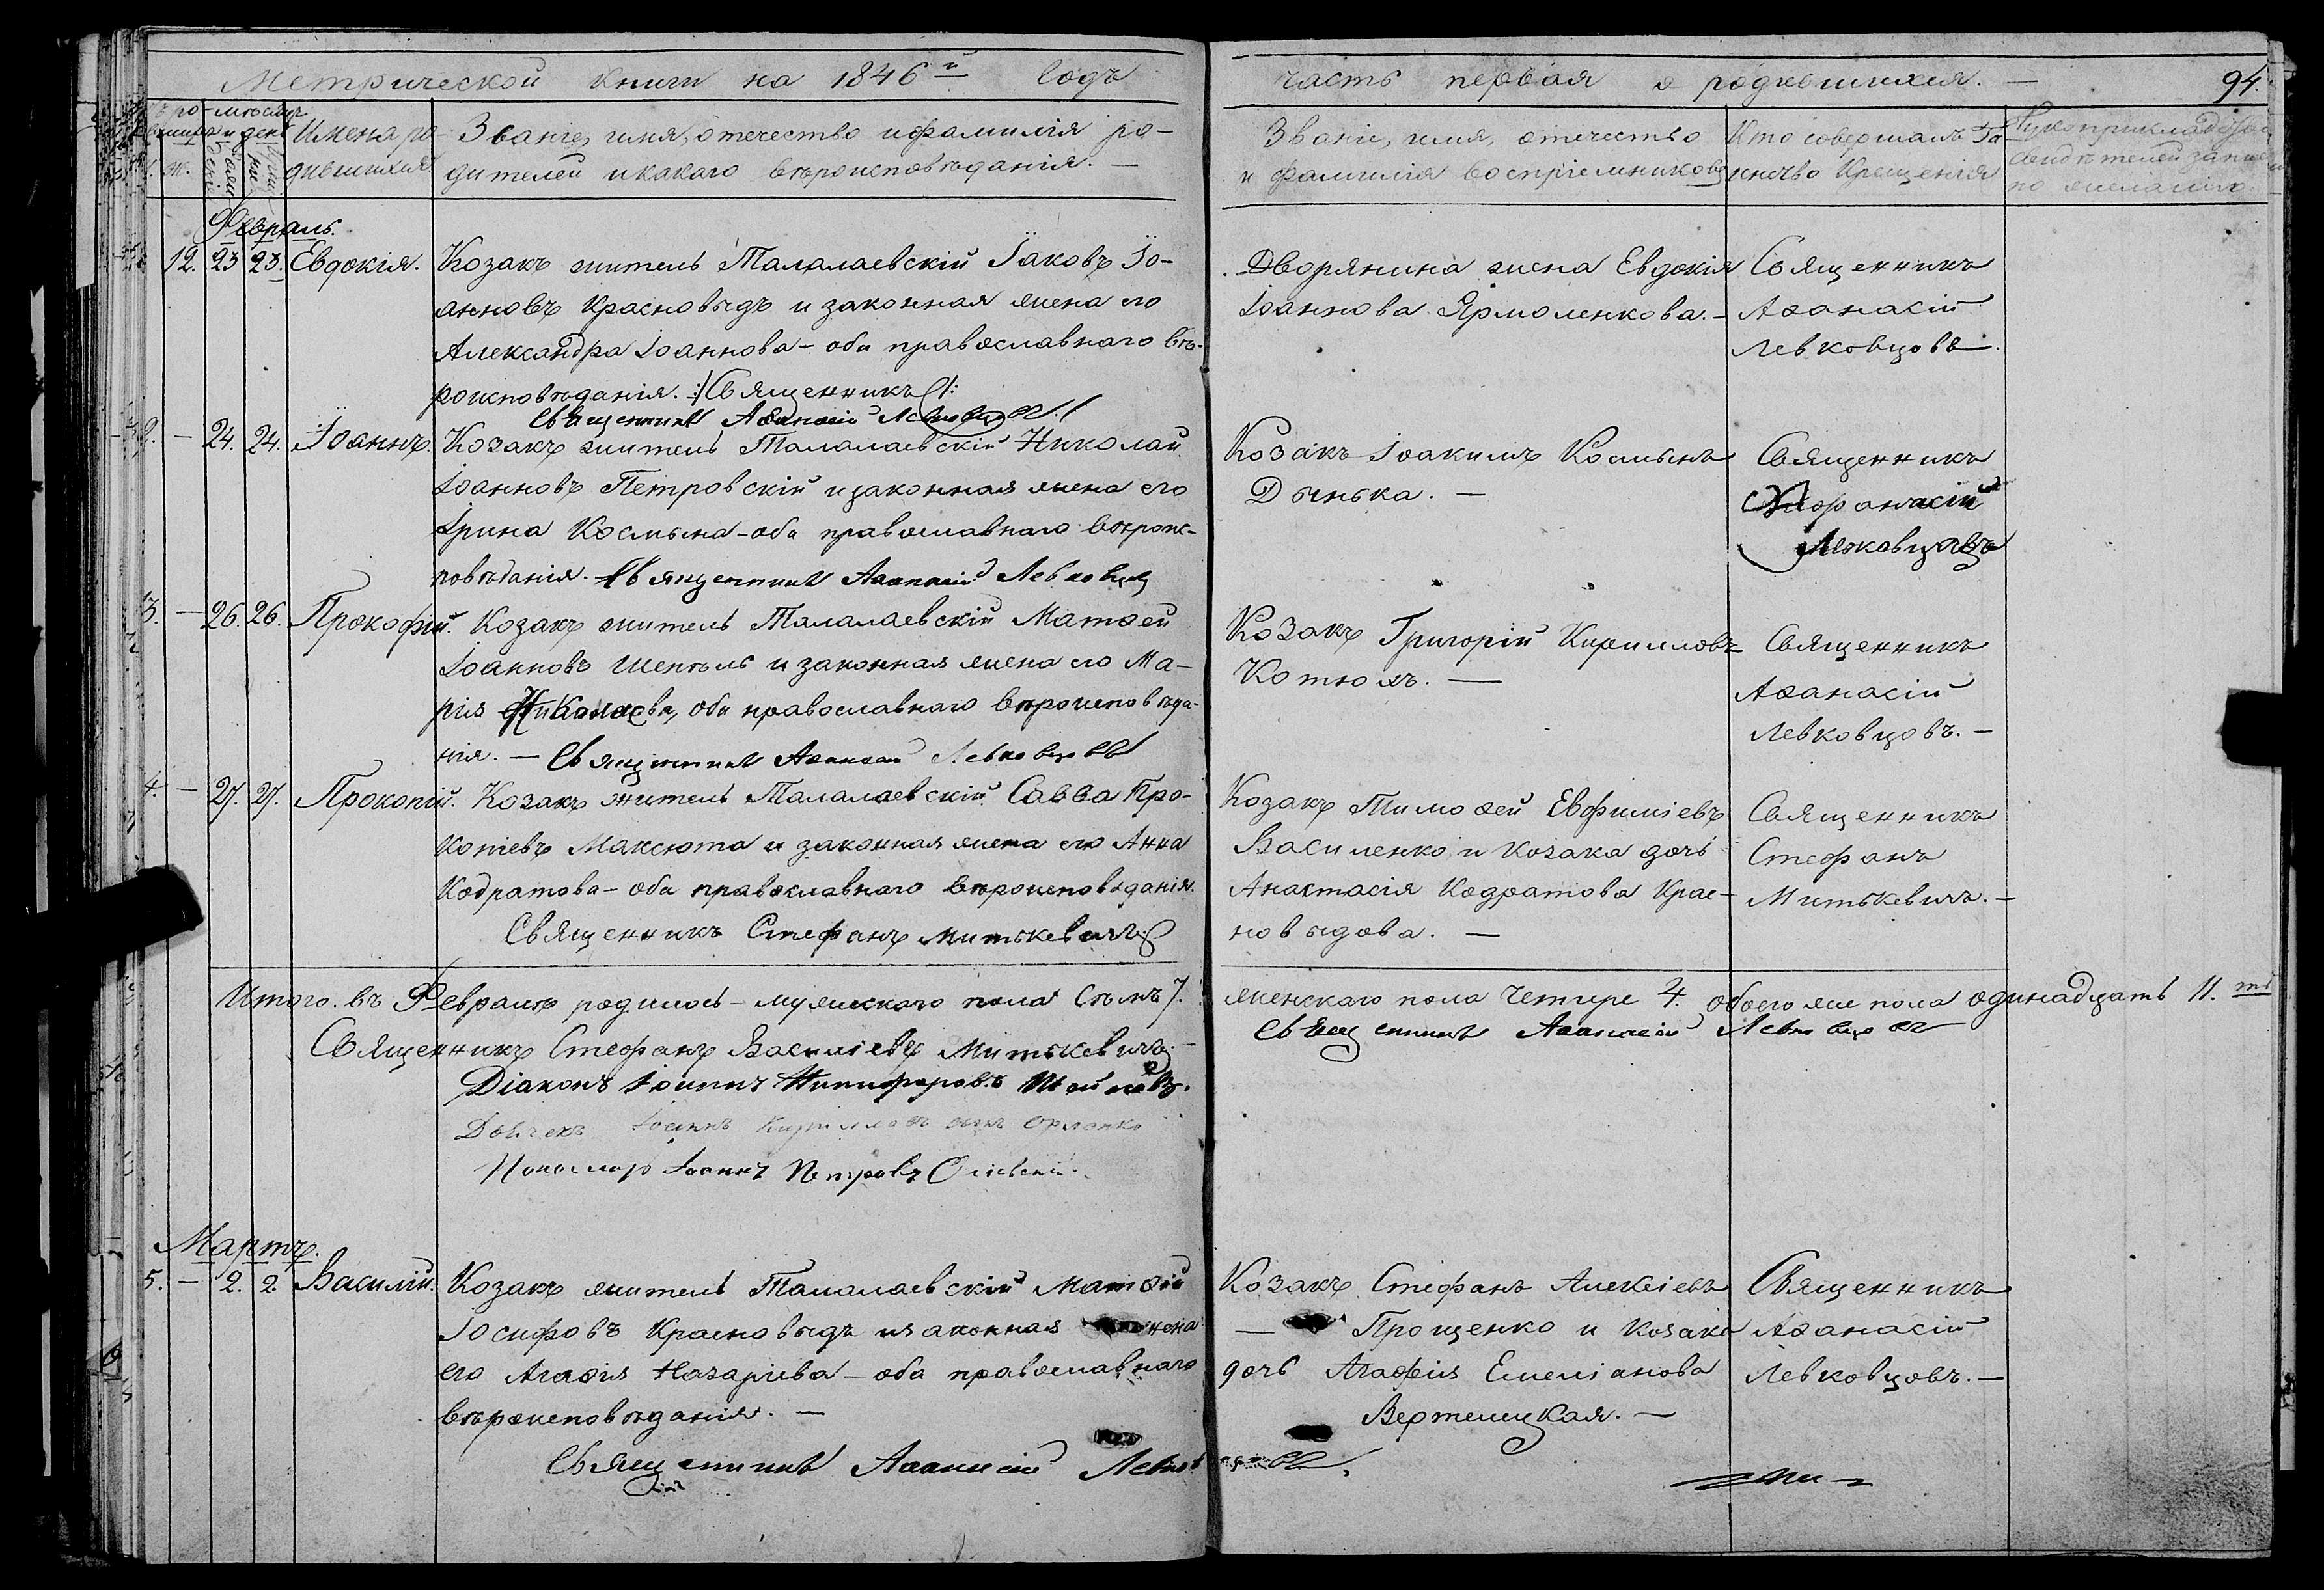 Метрической книги на 1846й годъ
часть первая о родившихся. —
94.
мѣсяцъ
и день
Имена ро-
дившихся
Званіе, имя, отечество и фамилія ро-
дителей и какаго вѣроисповѣданія. —
Званіе, имя, отечество
и фамилія воспріемниковъ
Кто совершалъ Та-
инство Крещенія
Рукоприкладство
свидѣтелей записи
по желанію
Февраль.
12. 23 23. Евдокія.
Козакъ житель Талалаевскій Іаковъ Іо-
анновъ Красновыдъ и законная жена его
Александра Іоаннова – оба православнаго вѣ-
роисповѣданія. :/Священникъ/:
Священникъ Аѳанасій Левковцовъ
Дворянина жена Евдокія
Іоаннова Ярмоленкова. –
Священникъ
Аѳанасій
Левковцовъ.
— 24. 24. Іоаннъ.
Козакъ житель Талалаевскій Николай
Іоанновъ Петровскій и законная жена его
Ірина Космына – оба православнаго вѣроис-
повѣданія. Священникъ Аѳанасій Левковцовъ
Козакъ Іоакимъ Космынъ
Дынька. —
Священникъ
Левковцовъ
3. — 26. 26. Прокофій.
Козакъ житель Талалаевскій Матѳей
Іоанновъ Шепѣль и законная жена его Ма-
рія Николаева, оба православнаго вѣроисповѣда-
нія. — Священникъ Аѳанасій Левковцовъ
Козакъ Григорій Кирилловъ
Котюхъ. —
Священникъ
Аѳанасій
Левковцовъ. –
4. — 27. 27. Прокопій.
Козакъ житель Талалаевскій Савва Про-
копіевъ Максюта и законная жена его Анна
Кодратова – оба православнаго вѣроисповѣданія.
Священникъ Стефанъ Митькевичъ
Козакъ Тимоѳей Евфиміевъ
Василенко и козака дочь
Анастасія Кодратова Крас-
новыдова. —
Священникъ
Стефанъ
Митькевичъ. –
Итого въ Февралѣ родилось – мужескаго пола Семь 7.
женскаго пола Четыре 4. обоего же пола одинадцать 11.ть
Священникъ Аѳанасій Левковцовъ
Священникъ Стефанъ Василіевъ Митькевичъ –
Діаконъ Іоаннъ Никифоровъ
Дьячекъ Іоаннъ Кирилловъ сынъ Орленко
Пономар Іоаннъ Петровъ
Мартъ.
5. — 2. 2. Василій.
Козакъ житель Талалаевскій Матѳій
Іосифовъ Красновыдъ и законная жена
его Агаѳія Назаріева – оба православнаго
вѣроисповѣданія. —
Священникъ Аѳанасій Левковцовъ
Козакъ Стефанъ Алексіевъ
— Прощенко и козака
дочь Агафія Емеліанова
Вертецкая. —
Священникъ
Аѳанасій
Левковцовъ. —